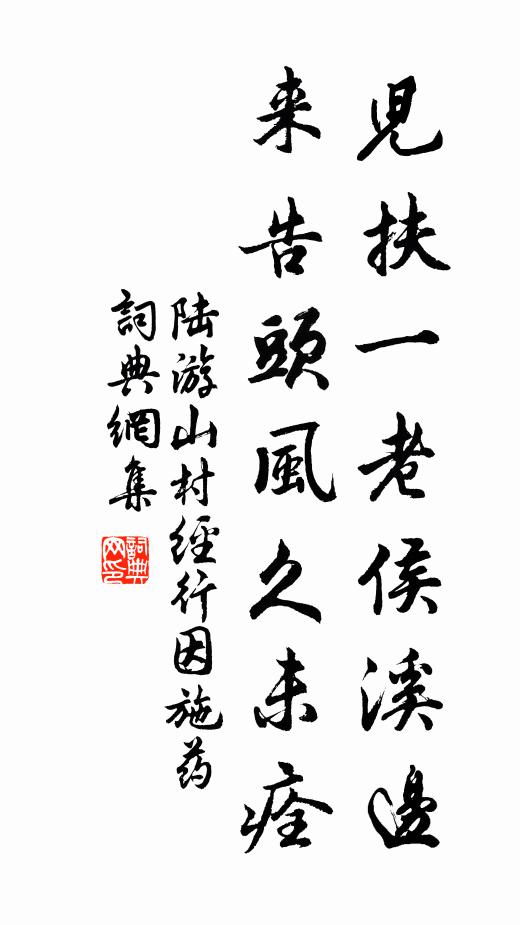 児扶一老侯溪邊
来告頭風久未痊
陆游山村經行因施药
詞典網集
詞典
网印